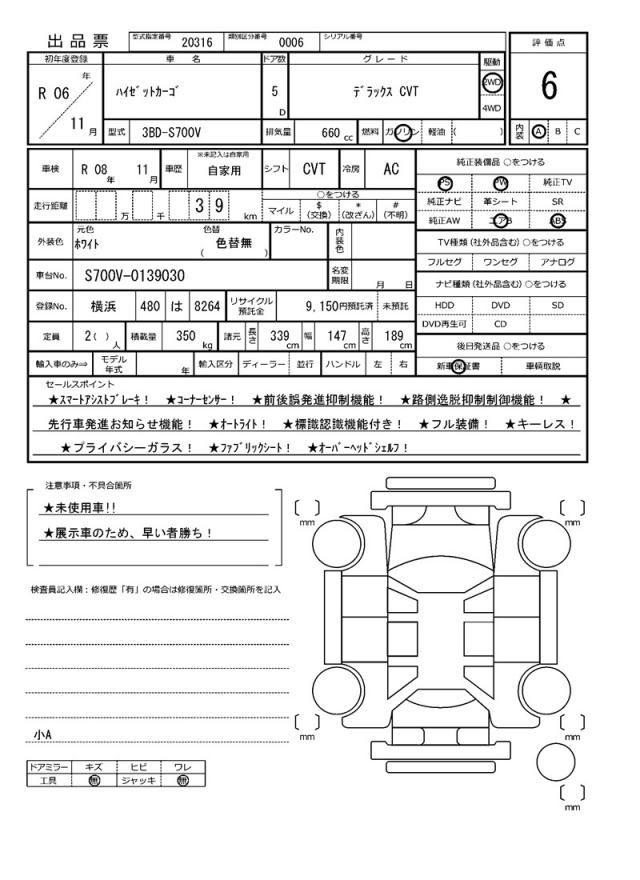 出品票 型式指定番号 20316 類別区分番号 0006 シリアル番号
評価点
6
内装 A B C
初年度登録 車名 ドア数 グレード 駆動
R 06 年 11 月 ﾊｲｾﾞｯﾄｶｰｺﾞ 5 D ﾃﾞﾗｯｸｽ CVT 2WD 4WD
型式 3BD-S700V 排気量 660 cc 燃料 ガソリン 軽油 ( )
車検 R 08 年 11 月 車歴 ※未記入は自家用 自家用 シフト CVT 冷房 AC
走行距離 万 千 3 9 km
○をつける
マイル $(交換) *(改ざん) #(不明)
外装色 元色 ﾎﾜｲﾄ 色替 色替無 ( ) カラーNo. 内装色
車台No. S700V-0139030 名変期限 月 日
登録No. 横浜 480 は 8264 リサイクル預託金 9,150円預託済 未預託
定員 2( ) 人 積載量 350 kg 諸元 長さ 339 cm 幅 147 cm 高さ 189 cm
輸入車のみ⇒ モデル年式 年 輸入区分 ディーラー 並行 ハンドル 左 右
純正装備品 ○をつける
PS PW 純正TV
純正ナビ 革シート SR
純正AW エアB ABS
TV種類 (社外品含む) ○をつける
フルセグ ワンセグ アナログ
ナビ種類 (社外品含む) ○をつける
HDD DVD SD
DVD再生可 CD
後日発送品 ○をつける
新車保証書 車輌取説
セールスポイント
★ｽﾏｰﾄｱｼｽﾄﾌﾞﾚｰｷ！ ★ｺｰﾅｰｾﾝｻｰ！ ★前後誤発進抑制機能！ ★路側逸脱抑制制御機能！ ★
先行車発進お知らせ機能！ ★ｵｰﾄﾗｲﾄ！ ★標識認識機能付き！ ★フル装備！ ★キーレス！
★プライバシーガラス！ ★ﾌｧﾌﾞﾘｯｸｼｰﾄ！ ★ｵｰﾊﾞｰﾍｯﾄﾞｼｪﾙﾌ！
注意事項・不具合箇所
★未使用車!!
★展示車のため、早い者勝ち！
検査員記入欄：修復歴「有」の場合は修復箇所・交換箇所を記入
小A
ドアミラー キズ ヒビ ワレ
工具 無 ジャッキ 無
[ ] mm
[ ] mm
[ ] mm
[ ] mm
[ ] mm